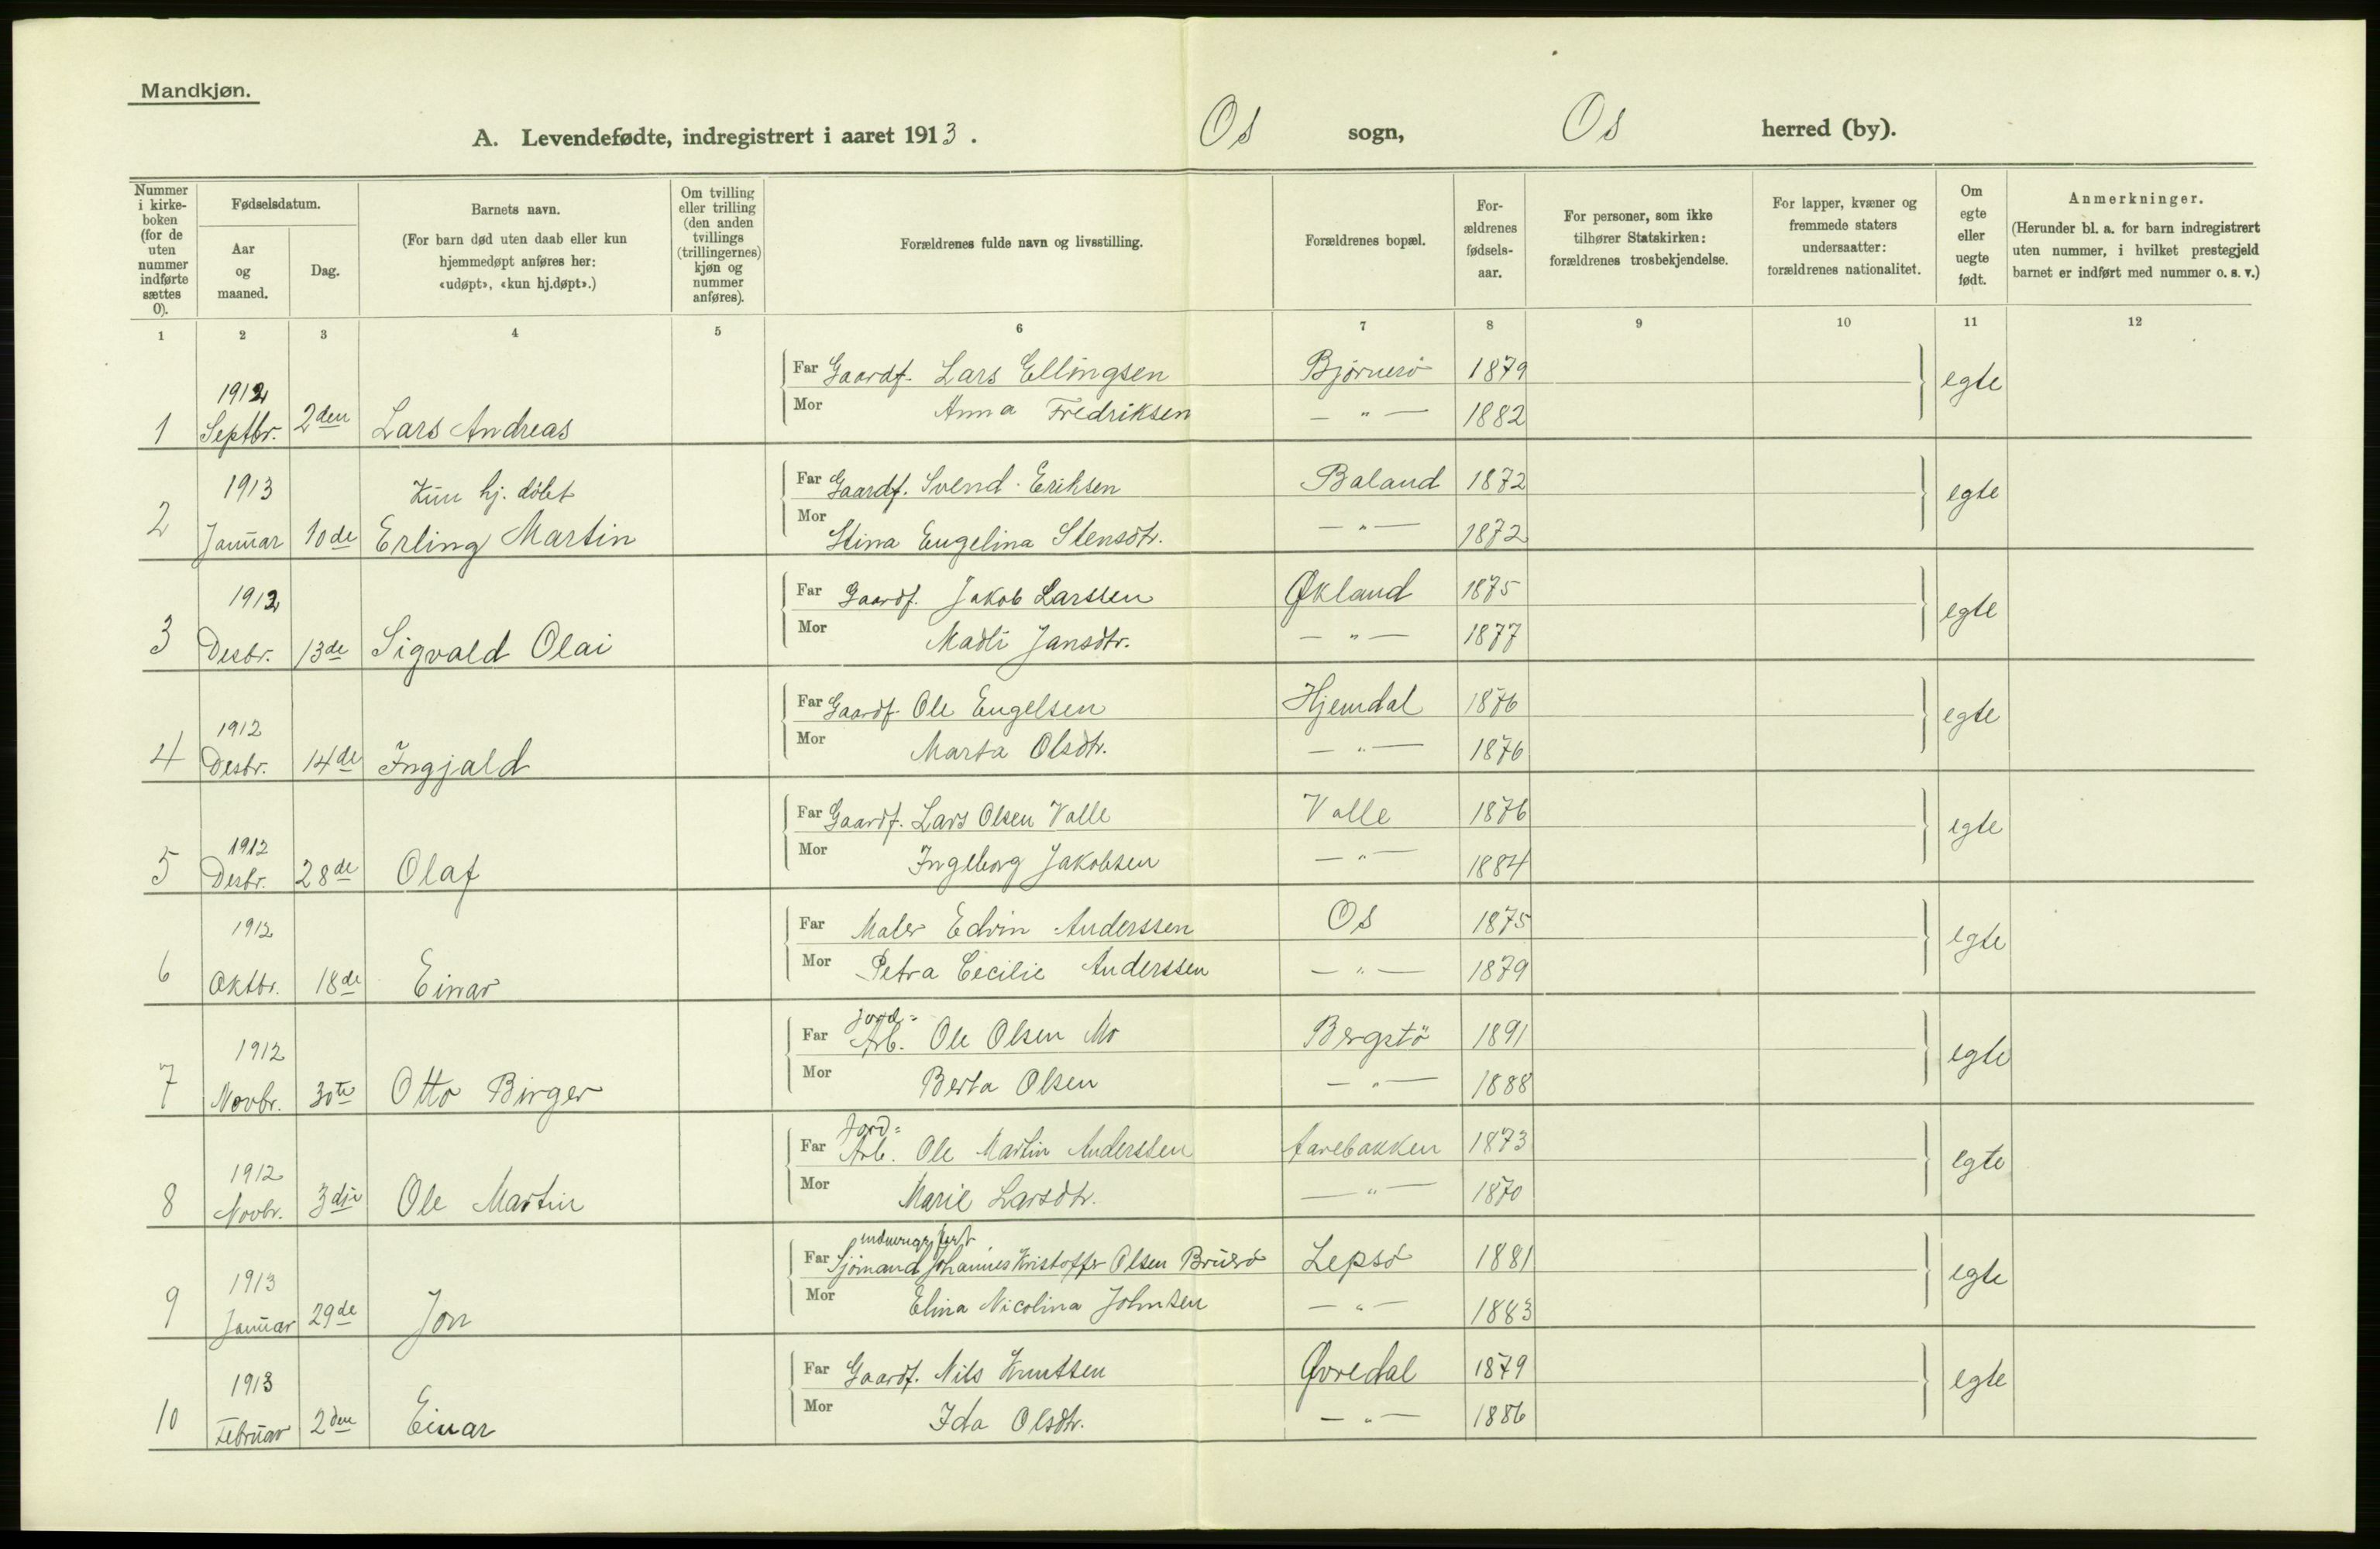 Mandkjøn.
A. Levendefødte, indregistrert i aaret 1913. Os sogn, Os herred (by).
Nummer i kirke-boken (for de uten nummer indførte sættes 0).
Fødselsdatum.
Aar og maaned.
Dag.
Barnets navn.
(For barn død uten daab eller kun hjemmedøpt anføres her: «udøpt», «kun hj.døpt».)
Om tvilling eller trilling (den anden tvillings (trillingernes) kjøn og nummer anføres).
Forældrenes fulde navn og livsstilling.
Forældrenes bopæl.
For-ældrenes fødsels-aar.
For personer, som ikke tilhører Statskirken: forældrenes trosbekjendelse.
For lapper, kvæner og fremmede staters undersaatter: forældrenes nationalitet.
Om egte eller uegte født.
Anmerkninger.
(Herunder bl. a. for barn indregistrert uten nummer, i hvilket prestegjeld barnet er indført med nummer o. s. v.)
1 2 3 4 5 6 7 8 9 10 11 12
1 1912 Septbr. 2den Lars Andreas
Far Gaardf. Lars Ellingsen Bjørnerö 1879 egte
Mor Anna Fredriksen — " — 1882
2 1913 Januar 10de Kun hj. döbt Erling Martin
Far Gaardf. Svend Eriksen Baland 1872 egte
Mor Stina Engelina Stensdtr. — " — 1872
3 1912 Desbr. 13de Sigvald Olai
Far Gaardf. Jakob Larssen Økland 1875 egte
Mor Madli Jansdtr. — " — 1877
4 1912 Desbr. 14de Ingjald
Far Gaardf. Ole Engelsen Hjemdal 1876 egte
Mor Marta Olsdtr. — " — 1876
5 1912 Desbr. 28de Olaf
Far Gaardf. Lars Olsen Valle Valle 1876 egte
Mor Ingeborg Jakobsen — " — 1884
6 1912 Oktbr. 18de Einar
Far Maler Edvin Anderssen Os 1875 egte
Mor Petra Cecilie Anderssen — " — 1879
7 1912 Novbr. 30te Otto Birger
Far Jord= Arb. Ole Olsen Mo Bergstö 1891 egte
Mor Berta Olsen — " — 1888
8 1912 Novbr. 3dje Ole Martin
Far Jord= Arb. Ole Martin Anderssen Aarebakken 1873 egte
Mor Marie Larsdtr. — " — 1870
9 1913 Januar 29de Jon
Far Sjömand Johannes Kristoffer Olsen Bruerö Lepsö 1881 egte
Mor Elina Nicolina Johnsen — " — 1883
10 1913 Februar 2den Einar
Far Gaardf. Nils Knutsen Øvredal 1879 egte
Mor Ida Olsdtr. — " — 1886